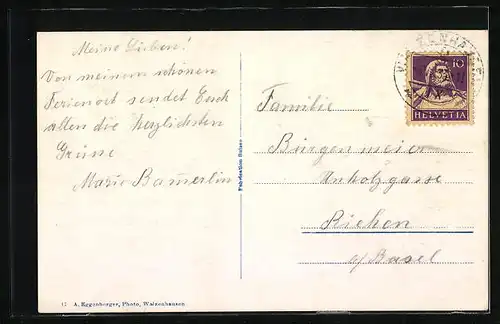 Meine Lieben!
Von meinem schönen
Ferienort sendet Euch
allen die herzlichsten
Grüsse
Marie Bamerlin
Fabrication Suisse
17 A. Eggenberger, Photo, Walzenhausen
WALZENHAUSEN
10
HELVETIA
Familie
Bürgenmeier
Unholzgasse
Riehen
b/ Basel